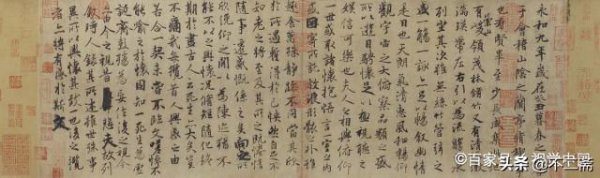 永和九年歲在癸丑暮春之初會
于會稽山陰之蘭亭脩稧事
也群賢畢至少長咸集此地
有崇山峻領茂林脩竹又有清流激
湍暎帶左右引以為流觴曲水
列坐其次雖無絲竹管弦之
盛一觴一詠亦足以暢敘幽情
是日也天朗氣清惠風和暢仰
觀宇宙之大俯察品類之盛
所以遊目騁懷足以極視聽之
娛信可樂也夫人之相與俯仰
一世或取諸懷抱悟言一室之內
或因寄所託放浪形骸之外雖
趣舍萬殊靜躁不同當其欣
於所遇暫得於己怏然自足不
知老之將至及其所之既惓情
隨事遷感慨係之矣向之所
欣俛仰之間以為陳迹猶不
能不以之興懷況脩短隨化終
期於盡古人云死生亦大矣豈
不痛哉每攬昔人興感之由
若合一契未嘗不臨文嗟悼不
能喻之於懷固知一死生為虛
誕齊彭殤為妄作後之視今
亦由今之視昔悲夫故列
敘時人錄其所述雖世殊事
異所以興懷其致一也後之攬
者亦將有感於斯文
百家号/视觉中国
头条 @不二斋